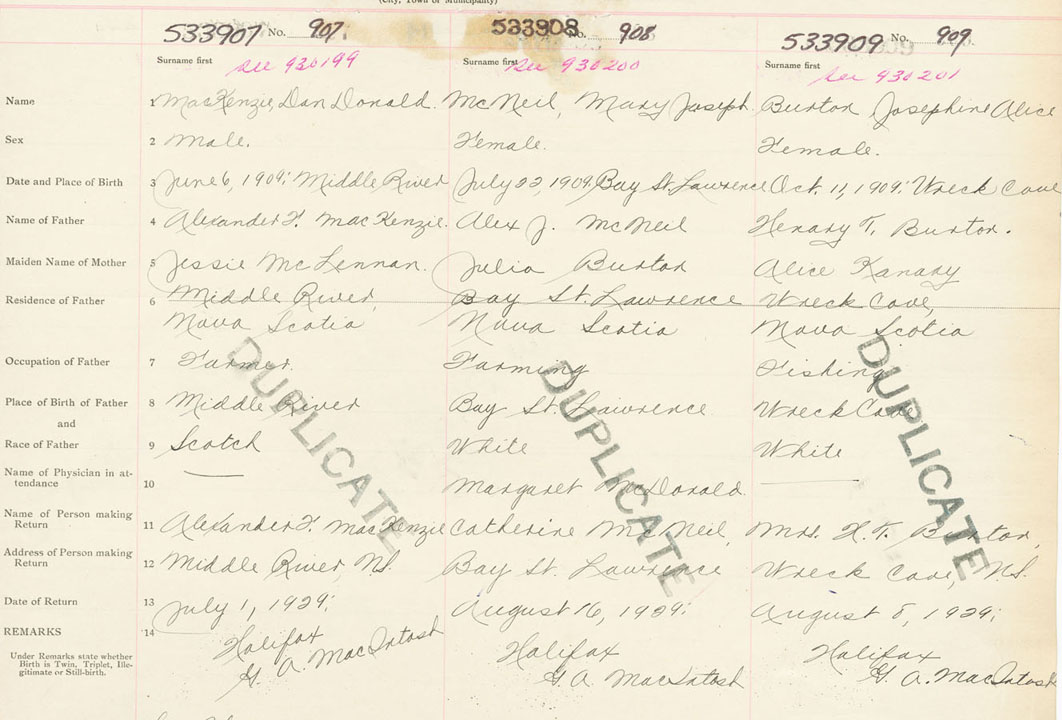 (City, Town or Municipality)
533907 No. 907. 533908 No. 908 533909 No. 909.
Surname first Surname first Surname first
See 930199 See 930200 See 930201
Name 1 MacKenzie, Dan Donald. McNeil, Mary Joseph. Burton Josephine Alice
Sex 2 Male. Female. Female.
Date and Place of Birth 3 June 6, 1909; Middle River July 22, 1909; Bay St. Lawrence Oct. 11, 1909; Wreck Cove
Name of Father 4 Alexander F. MacKenzie. Alex J. McNeil Henary T. Burton.
Maiden Name of Mother 5 Jessie McLennan. Julia Burton Alice Kanary
Residence of Father 6 Middle River, Bay St. Lawrence Wreck Cove,
Nova Scotia Nova Scotia Nova Scotia
Occupation of Father 7 Farmer. Farming Fishing
Place of Birth of Father 8 Middle River Bay St. Lawrence Wreck Cove
and
Race of Father 9 Scotch White White
Name of Physician in at-
tendance 10 Margaret McDonald.
Name of Person making
Return 11 Alexander F. MacKenzie Catherine McNeil, Mrs. H. T. Burton,
Address of Person making
Return 12 Middle River, N.S. Bay St. Lawrence Wreck Cove, N.S.
Date of Return 13 July 1, 1929; August 16, 1929; August 8, 1929;
REMARKS 14 Halifax Halifax Halifax
G. A. MacIntosh G. A. MacIntosh G. A. MacIntosh
Under Remarks state whether
Birth is Twin, Triplet, Ille-
gitimate or Still-birth.
DUPLICATE DUPLICATE DUPLICATE